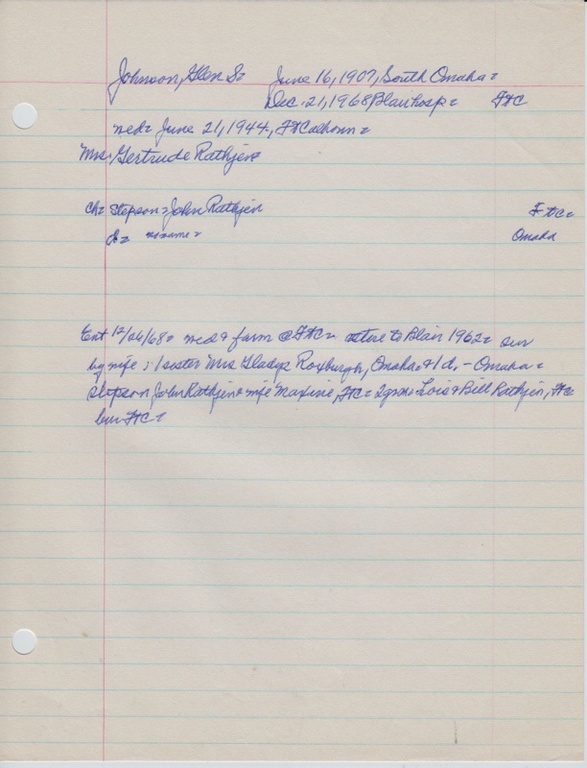 Johnson, Glen S= June 16, 1907, South Omaha=
Dec. 21, 1968 Blair hosp= FtC
med= June 21, 1944, FtCalhoun=
Mrs. Gertrude Rathjen=
ch= Stepson=John Rathjen FtC=
d= noname= Omaha
Ent 12/26/68= med & farm @FtC= retire to Blair 1962= sur
by wife; 1 sister Mrs Gladys Roxburgh, Omaha=&1d,-Omaha=
Stepson John Rathjen & wife Maxine, FtC= 2gson=Lois & Bill Rathjen, FtC=
bur FtC=